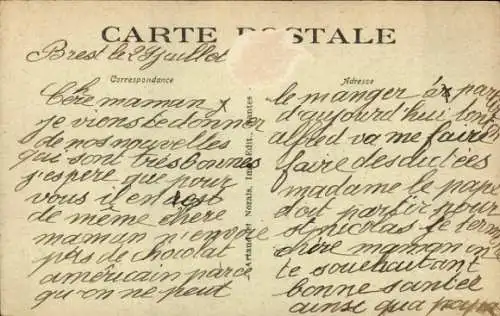 CARTE POSTALE
Brest le 29 juillet
Correspondance
Chère maman
je viens te donner
de nos nouvelles
qui sont très bonnes
j'espère que pour
vous il en est
de même chère
maman n'envoie
pas de chocolat
américain parce
qu'on ne peut
Artaud et Nozais, Imp. Edit., Nantes
Adresse
le manger à par
d'aujourd'hui tout
alfred va me faire
faire des
madame le
doit partir pour
St nicolas je
chère maman en
te souhaitant
bonne santée
ainsi qua papa